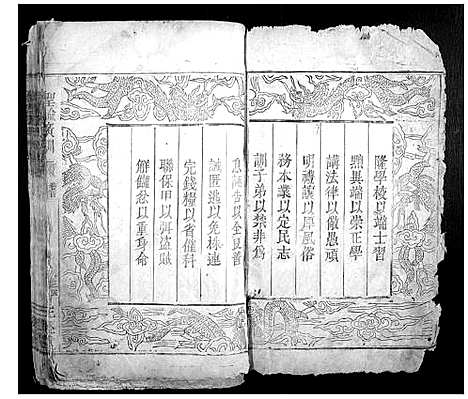 隆學校以端士習
黜異端以崇正學
講法律以儆愚頑
明禮讓以厚風俗
務本業以定民志
訓子弟以禁非為
息誣告以全良善
誡匿逃以免株連
完錢糧以省催科
聯保甲以弭盜賊
解讐忿以重身命
聖諭廣訓